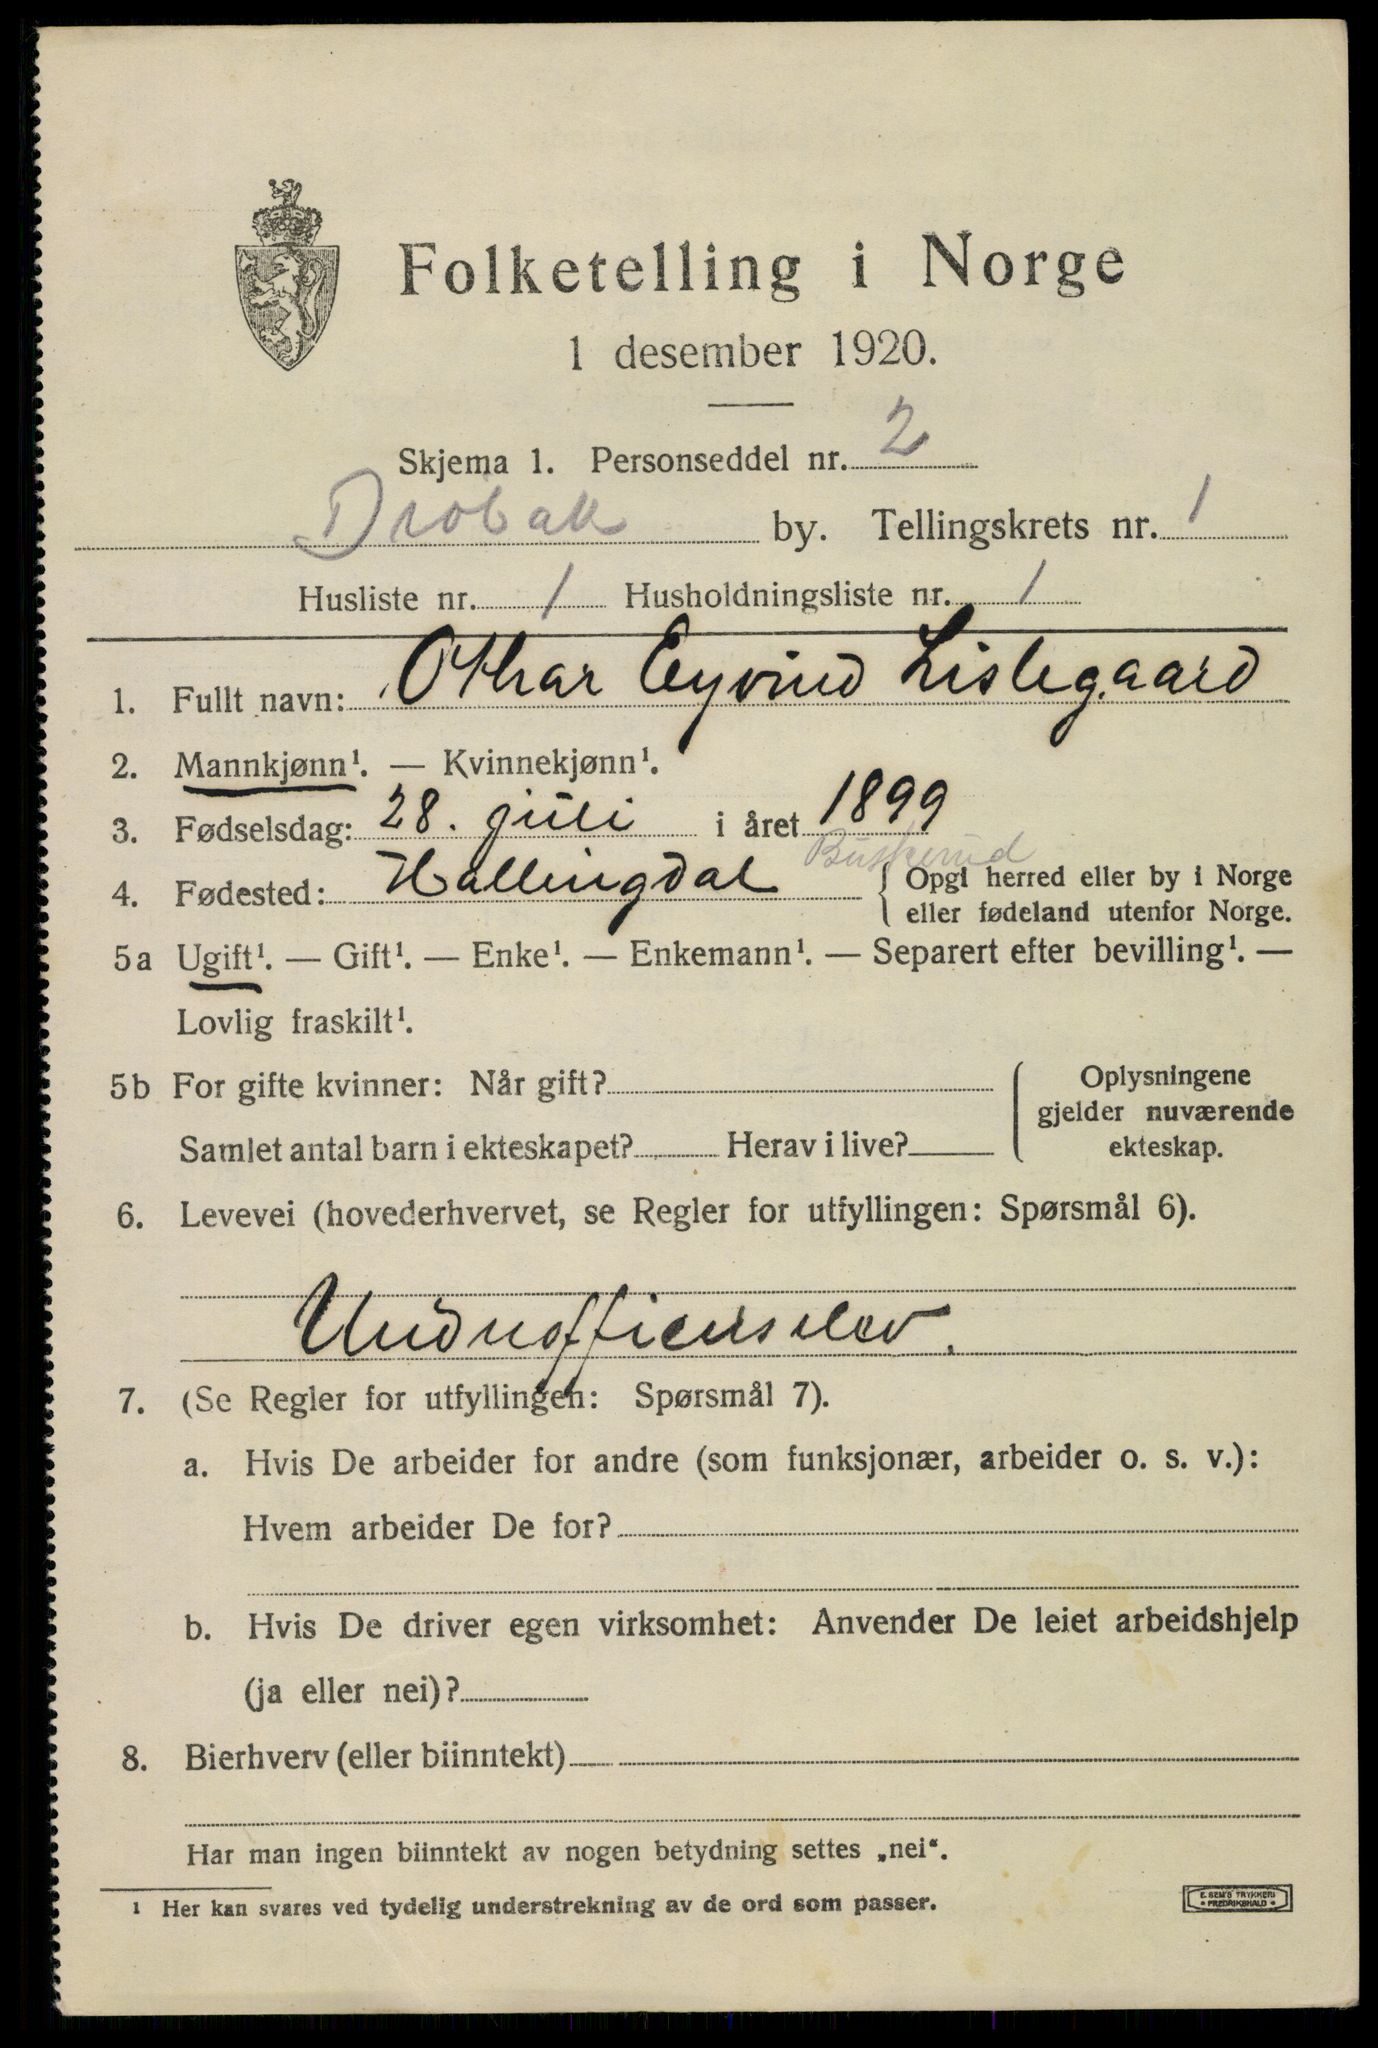 Folketelling i Norge
1 desember 1920.
Skjema 1. Personseddel nr. 2
Drøbak by. Tellingskrets nr. 1
Husliste nr. 1 Husholdningsliste nr. 1
1. Fullt navn: Othar Eyvind Lislegaard
2. Mannkjønn¹. — Kvinnekjønn¹.
3. Fødselsdag: 28. juli i året 1899
Buskerud
4. Fødested: Hallingdal { Opgi herred eller by i Norge
eller fødeland utenfor Norge.
5a Ugift¹. — Gift¹. — Enke¹. — Enkemann¹. — Separert efter bevilling¹. —
Lovlig fraskilt¹.
5b For gifte kvinner: Når gift?
Samlet antal barn i ekteskapet? Herav i live?
Oplysningene
gjelder nuværende
ekteskap.
6. Levevei (hovederhvervet, se Regler for utfyllingen: Spørsmål 6).
Undroffiserselev.
7. (Se Regler for utfyllingen: Spørsmål 7).
a. Hvis De arbeider for andre (som funksjonær, arbeider o. s. v.):
Hvem arbeider De for?
b. Hvis De driver egen virksomhet: Anvender De leiet arbeidshjelp
(ja eller nei)?
8. Bierhverv (eller biinntekt)
Har man ingen biinntekt av nogen betydning settes „nei“.
¹ Her kan svares ved tydelig understrekning av de ord som passer.
E. SEM'S TRYKKERI
FREDRIKSHALD